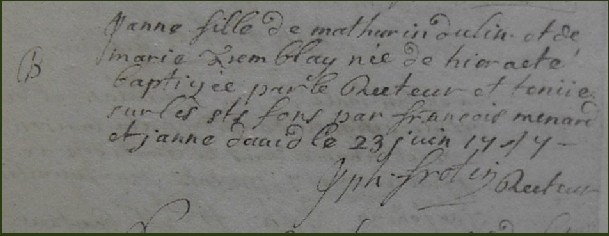 Janne fille de mathurin oulin et de
B marie Tremblay née de hier a eté
baptisée par le Recteur et teniie
sur les sts fons par francois menard
et janne david le 23 juin 17
Jph frotin Recteur